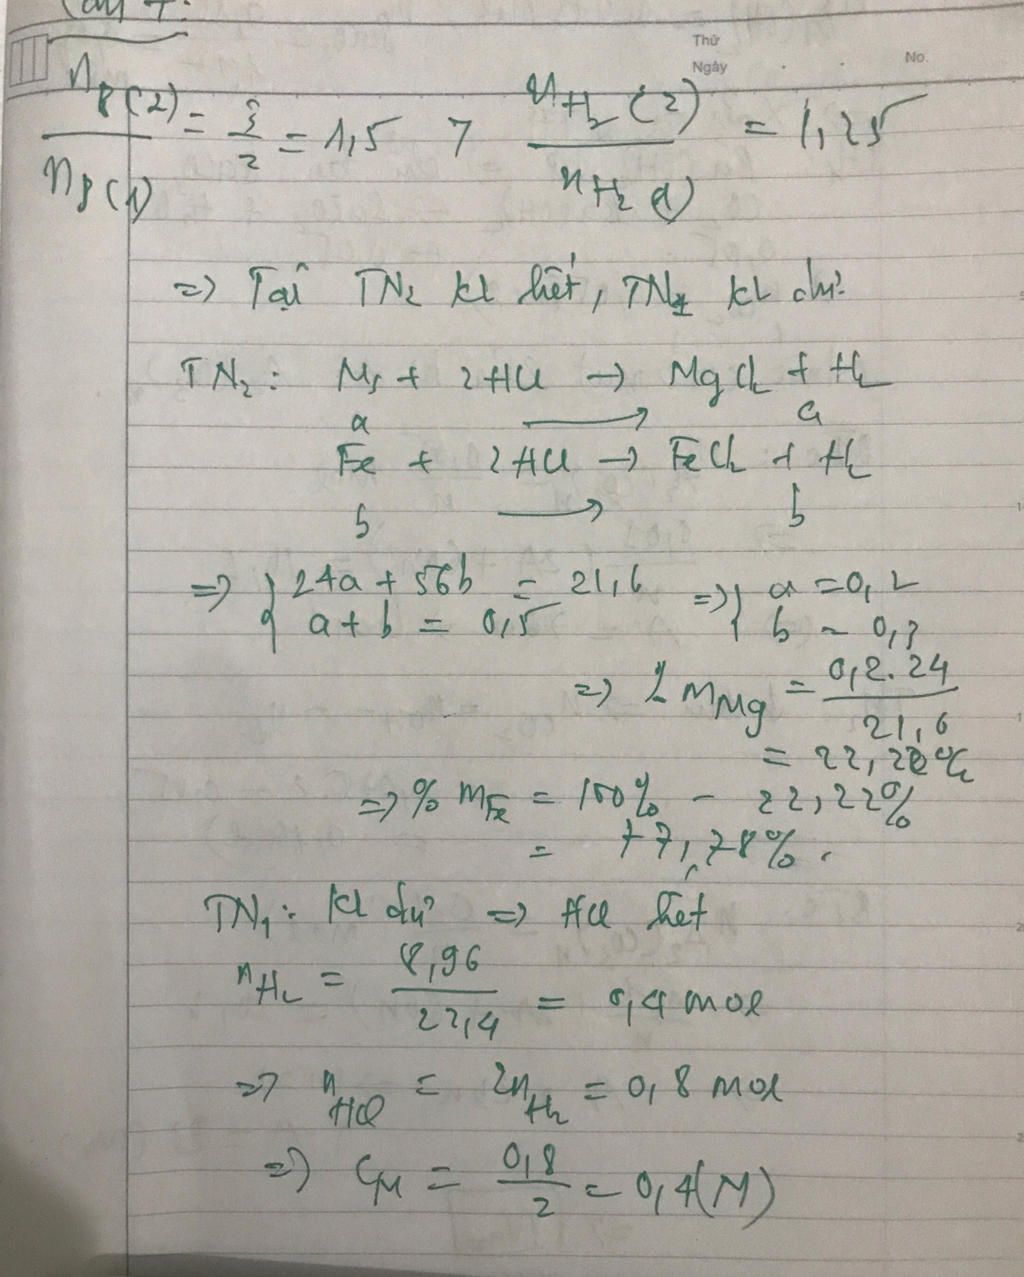 Câu 4:
Thứ
Ngày
No.
n_B(2) / n_B(1) = 3/2 = 1,5 > n_H2(2) / n_H2(1) = 1,25
=> Tại TN2 kl hết, TN1 kl dư
TN2: Mg + 2HCl → MgCl2 + H2
a → a
Fe + 2HCl → FeCl2 + H2
b → b
=> { 24a + 56b = 21,6 => { a = 0,2
a + b = 0,5 b = 0,3
=> % mMg = 0,2.24 / 21,6
= 22,22%
=> % mFe = 100% - 22,22%
= 77,78%.
TN1: kl dư => HCl hết
nH2 = 8,96 / 22,4 = 0,4 mol
=> nHCl = 2nH2 = 0,8 mol
=> CM = 0,8 / 2 = 0,4(M)